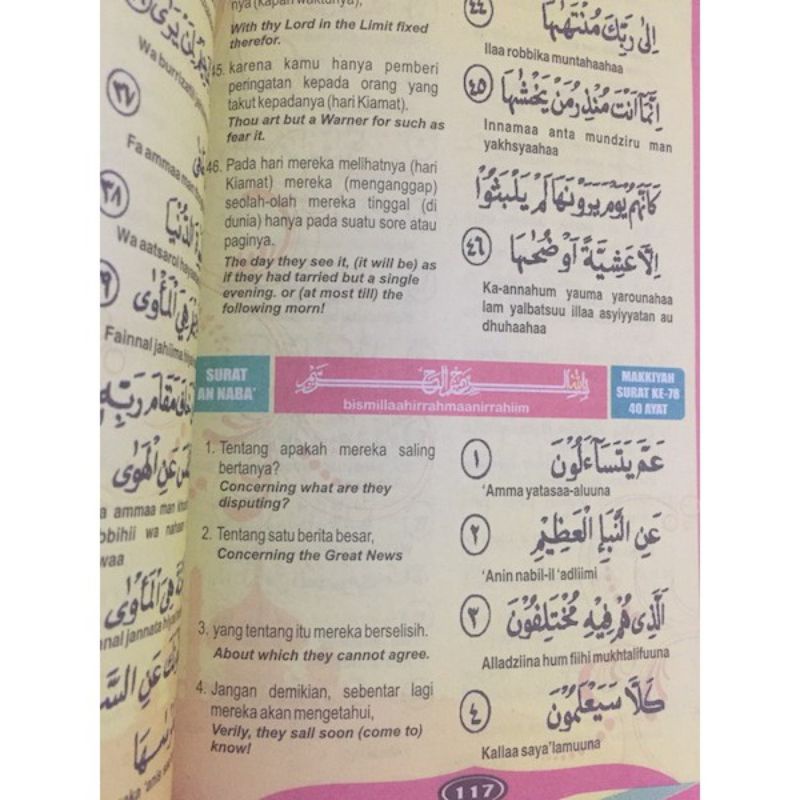 nya (kapan waktunya),
With thy Lord in the Limit fixed
therefor.
٤٤
اِلٰى رَبِّكَ مُنْتَهٰىهَا
Ilaa robbika muntahaahaa
45. karena kamu hanya pemberi
peringatan kepada orang yang
takut kepadanya (hari Kiamat).
Thou art but a Warner for such as
fear it.
٤٥
اِنَّمَآ اَنْتَ مُنْذِرُ مَنْ يَّخْشٰىهَا
Innamaa anta mundziru man
yakhsyaahaa
46. Pada hari mereka melihatnya (hari
Kiamat) mereka (menganggap)
seolah-olah mereka tinggal (di
dunia) hanya pada suatu sore atau
paginya.
The day they see it, (it will be) as
if they had tarried but a single
evening. or (at most till) the
following morn!
كَاَنَّهُمْ يَوْمَ يَرَوْنَهَا لَمْ يَلْبَثُوْٓا
٤٦
اِلَّا عَشِيَّةً اَوْ ضُحٰىهَا
Ka-annahum yauma yarounahaa
lam yalbatsuu illaa asyiyyatan au
dhuhaahaa
SURAT
AN NABA'
بسم الله الرحمن الرحيم
bismillaahirrahmaanirrahiim
MAKKIYAH
SURAT KE-78
40 AYAT
1. Tentang apakah mereka saling
bertanya?
Concerning what are they
disputing?
١
عَمَّ يَتَسَآءَلُوْنَ
'Amma yatasaa-aluuna
2. Tentang satu berita besar,
Concerning the Great News
٢
عَنِ النَّبَاِ الْعَظِيْمِ
'Anin nabil-il 'adliimi
3. yang tentang itu mereka berselisih.
About which they cannot agree.
٣
الَّذِيْ هُمْ فِيْهِ مُخْتَلِفُوْنَ
Alladziina hum fiihi mukhtalifuuna
4. Jangan demikian, sebentar lagi
mereka akan mengetahui,
Verily, they sall soon (come to)
know!
٤
كَلَّا سَيَعْلَمُوْنَ
Kallaa saya'lamuuna
117
٣٧
Fa ammaa man
٣٨
Wa aatsarol
هِيَ الْمَأْوٰى
Fainnal jahiima
مَقَامَ رَبِّهٖ
عَنِ الْهَوٰى
ammaa man
wa nahan
هِيَ الْمَأْوٰى
jannata